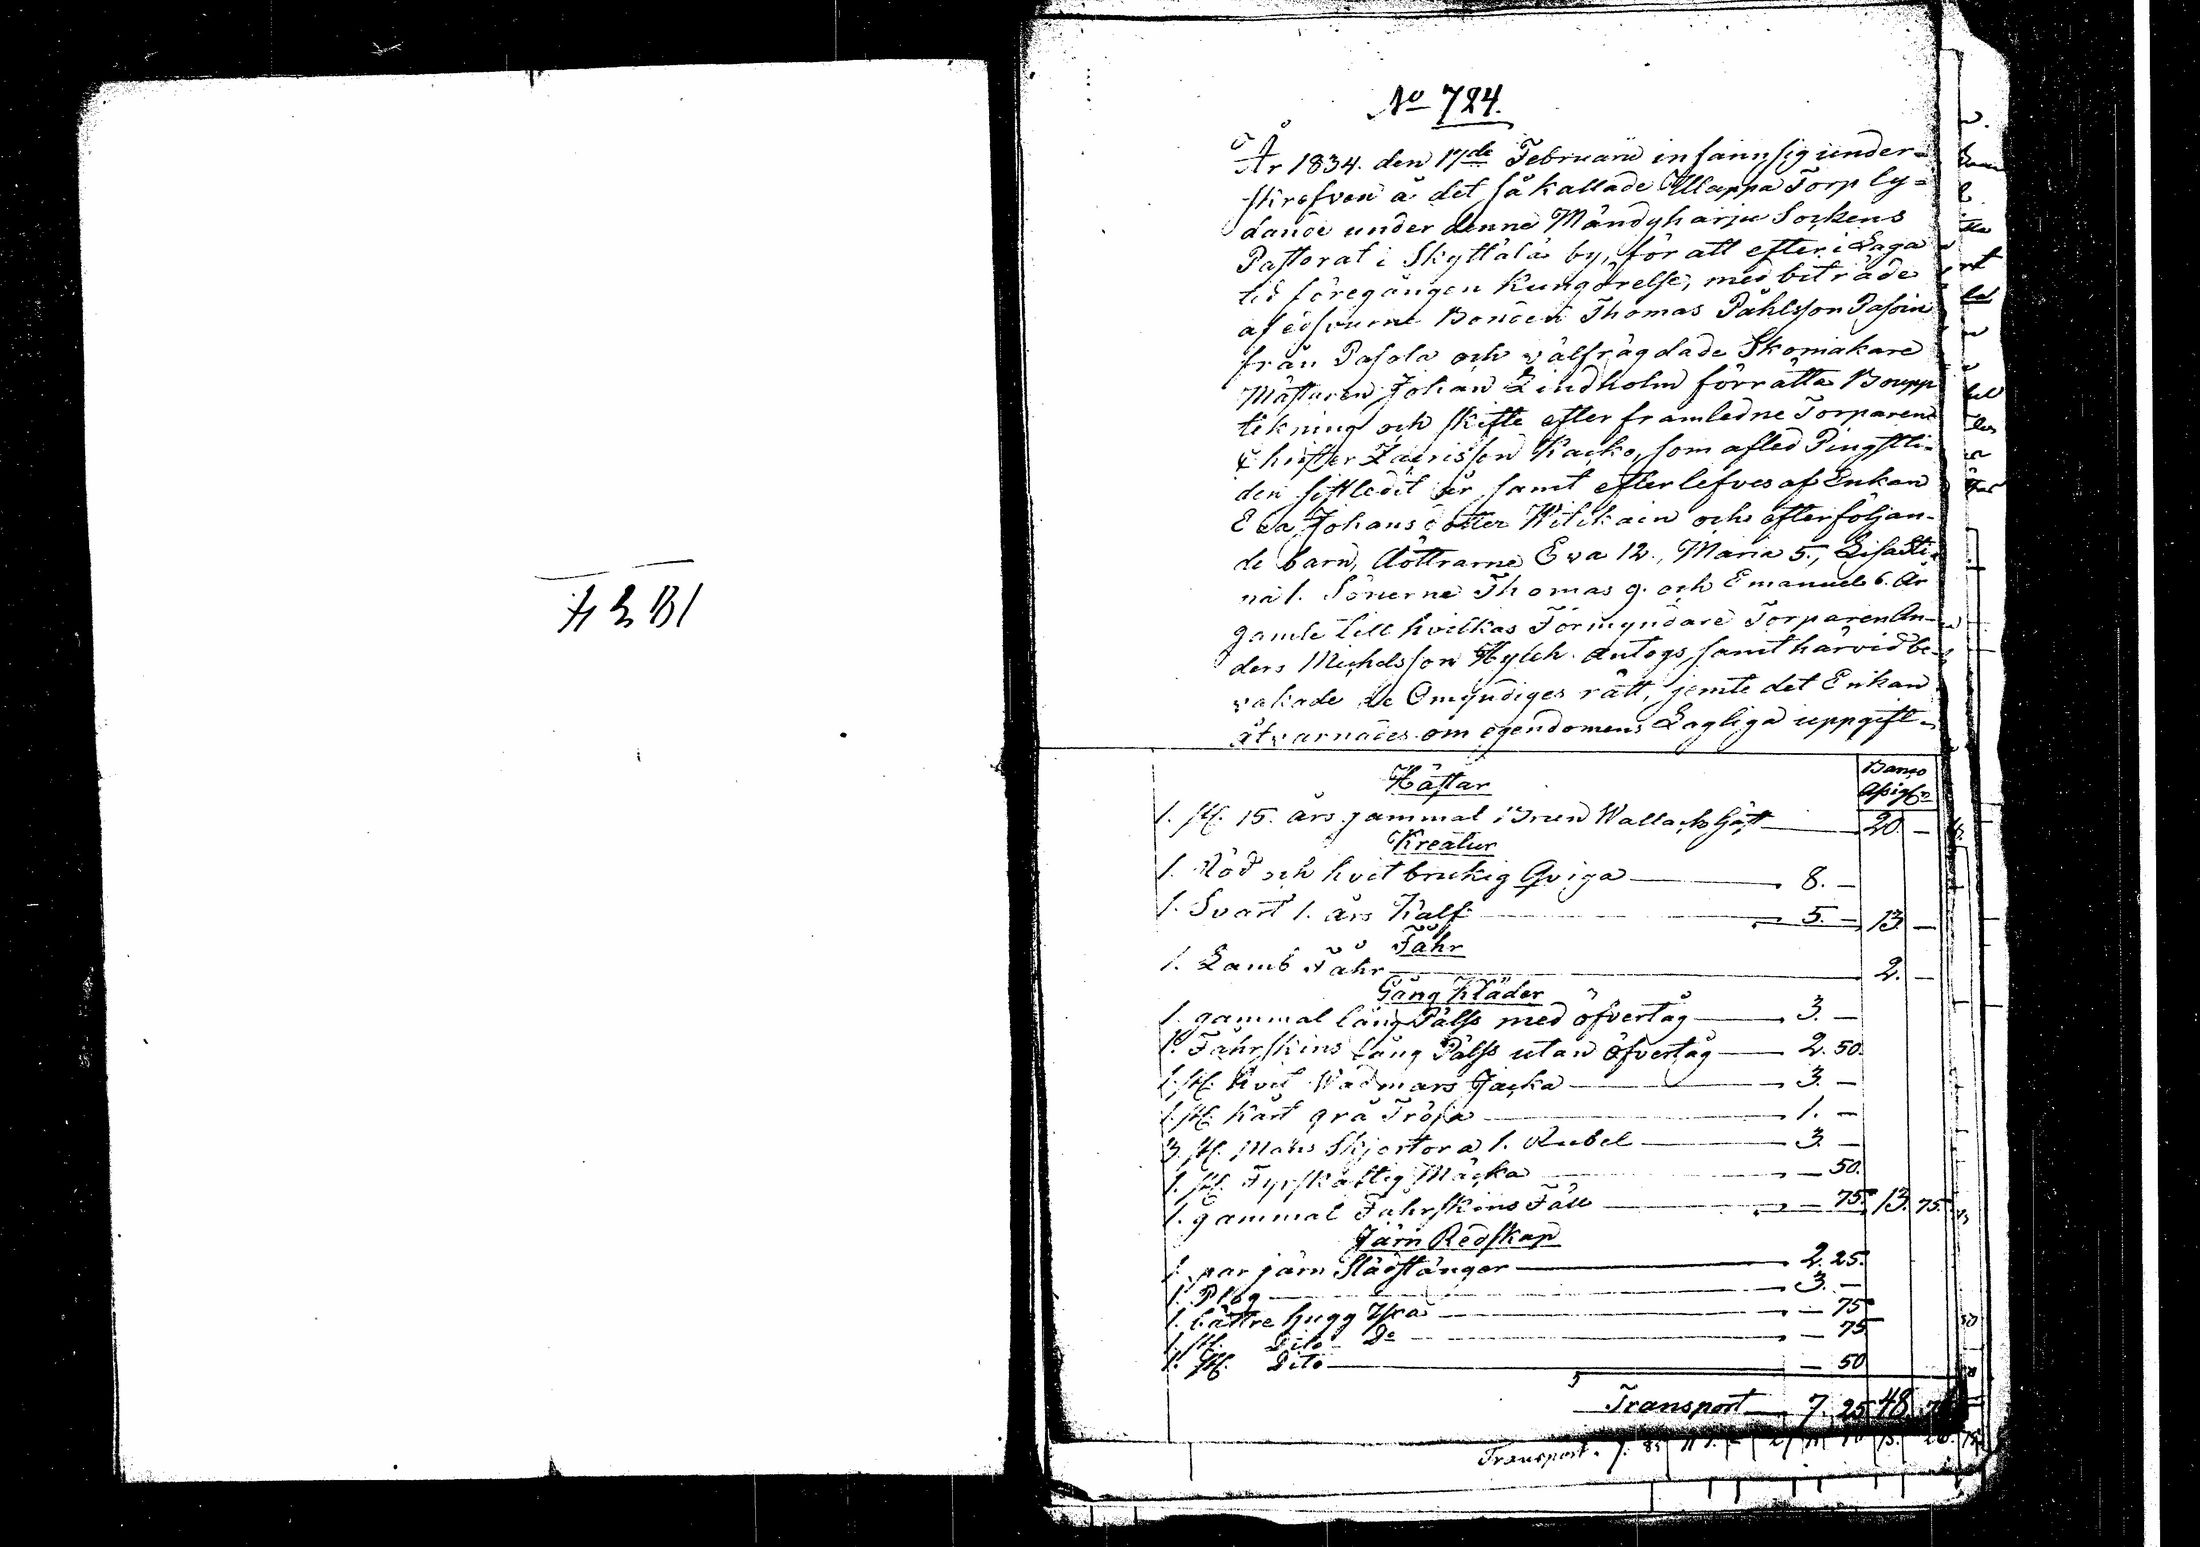 No 724.
År 1834. den 17de Februarii infann sig under-
skrefven å det så kallade Ulappa Torp ly-
dande under denne Mändyharju Sockens
Pastorat i Skyttälä by, för att efter i Laga
tid föregången Kungörelse, med biträde
af edsvurne Bonden Thomas Påhlsson Pasoin
från Pasola och välfrägdade Skomakare
Mästaren Johan Lindholm förrätta Boupp
tekning och skifte efter framledne Torparen
Christer Laurisson Kacko, som afled Pingstti-
den sistledit år samt efterlefves af Enkan
Eva Johansdotter Witikain och efterföljan-
de barn, döttrarne Eva 12., Maria 5., Lisa Sti-
na 1. Sönerne Thomas 9. och Emanuel 6. År
gamle till hvilkas Förmyndare Torparen An-
ders Michelsson Hyteh antogs, samt härvid be-
vakade de Omyndiges rätt, jemte det Enkan
åtvarnades om egendomens Lagliga uppgift
Hästar
Banco
Assign
1. st. 15. års gammal brun Wallack häst 20 —
Kreatur
1. Röd och hvit brukig Qviga 8. —
1. Svart 1. års Kalf 5. — 13. —
Fåhr
1. Lamb Fåhr 2. —
Gång Kläder
1. gammal lång Pälss med öfvertåg 3. —
1. Fåhrskins lång Pälss utan öfvertåg 2. 50.
1. st. hvit Wadmars Jacka 3. —
1. st. kårt grå Tröja 1. —
3. st. Mans Skjortor a 1. Rubel 3. —
1. st. Fyrskäftig Mäcka — 50.
1. gammal Fåhrskins Fäll — 75. 13. 75.
Järn Redskap
1. par järn Slädstänger 2. 25.
1. Plog 3. —
1. bättre hugg Yxa — 75
1. st. Dito Do — 75
1. st. Dito — 50
Transport 7. 25 48.
Transport.
1834